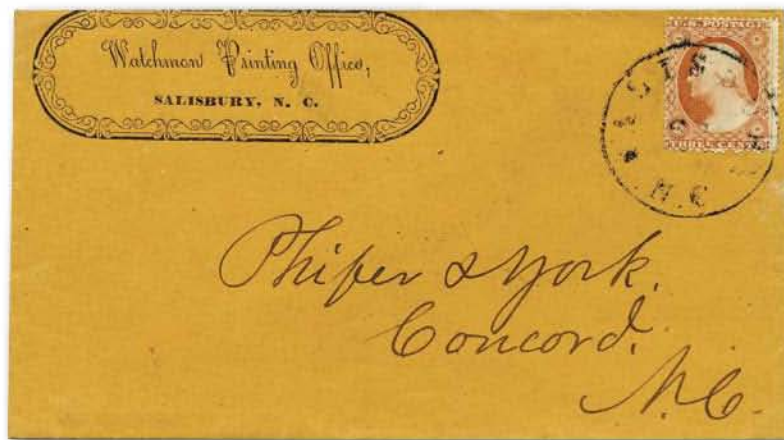 Watchman Printing Office,
SALISBURY, N. C.
U.S. POSTAGE
THREE CENTS
Phifer & York.
Concord.
N.C.